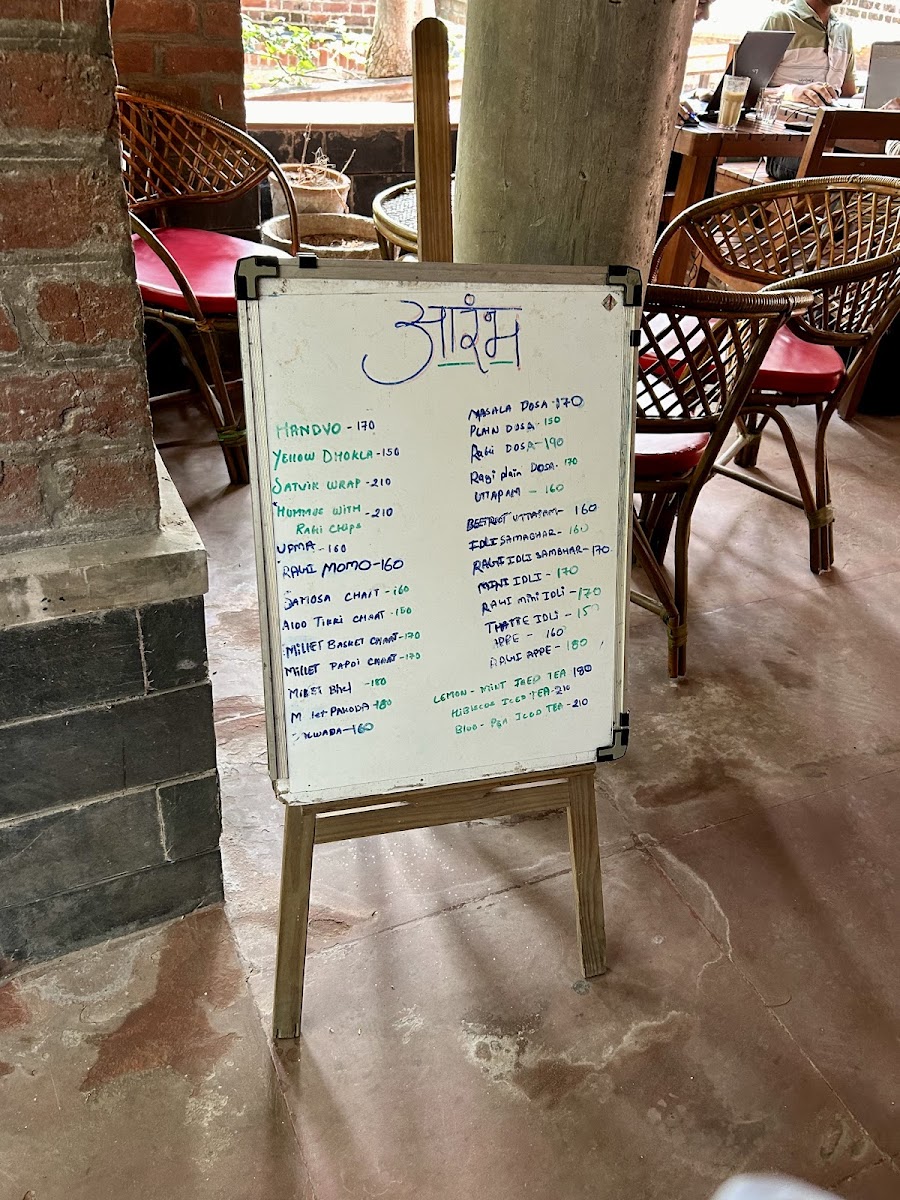 आरंभ
HANDVO - 170
YEllOW DHOKLA - 150
SATVIK WRAP - 210
HUMMUS WITH
RAGI CHIPS - 210
UPMA - 160
RAGI MOMO - 160
SAMOSA CHAAT - 160
AlOO TIKKI CHAAT - 150
MillET BASKET CHAAT - 170
MILLET PAPDI CHAAT - 170
Bhel - 180
PAKODA - 180
160
MASALA DOSA - 170
PLAIN DOSA - 150
Ragi DOSA - 190
Ragi plain DOSA - 170
UTTAPAM - 160
BEETROOT UTTAPAM - 160
IDLI SAMABHAR - 160
RAGI IDLI SAMBHAR - 170
MINI IDLI - 170
RAGI MINI IDLI - 170
THATTE IDLI - 150
APPE - 160
RAGI APPE - 180
LEMON - MINT ICED TEA 180
HIBISCUS ICED TEA - 210
BlUE - PEA ICED TEA - 210